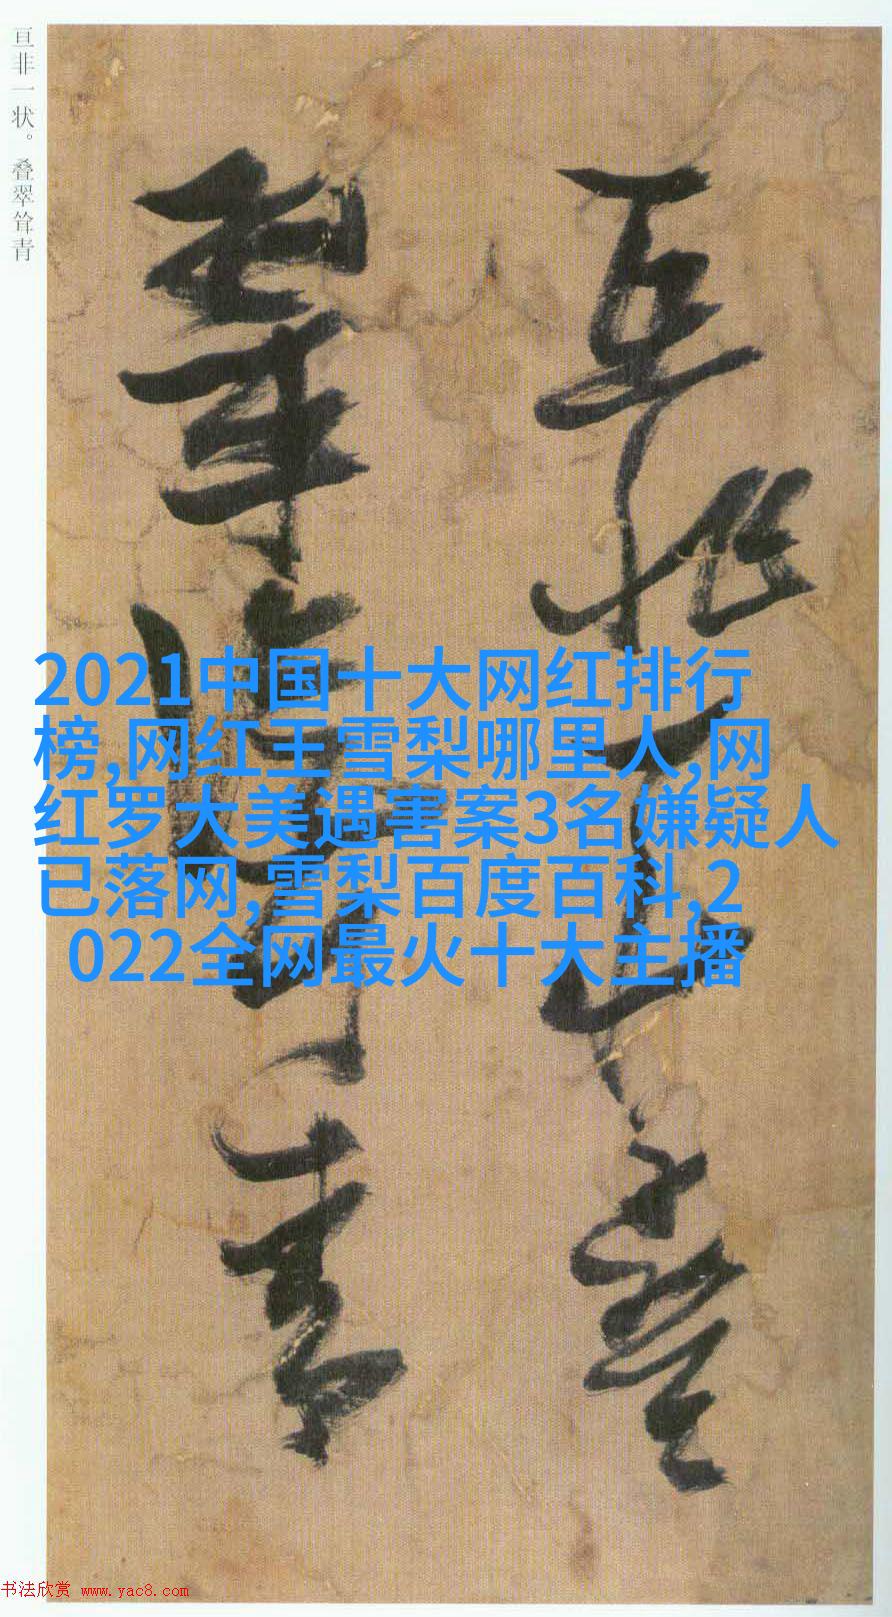 亘非一状。叠翠耸青
亘非一状叠
翠耸青
2021中国十大网红排行
榜,网红王雪梨哪里人,网
红罗大美遇害案3名嫌疑人
已落网,雪梨百度百科,2
022全网最火十大主播
书法欣赏 www.yac8.com